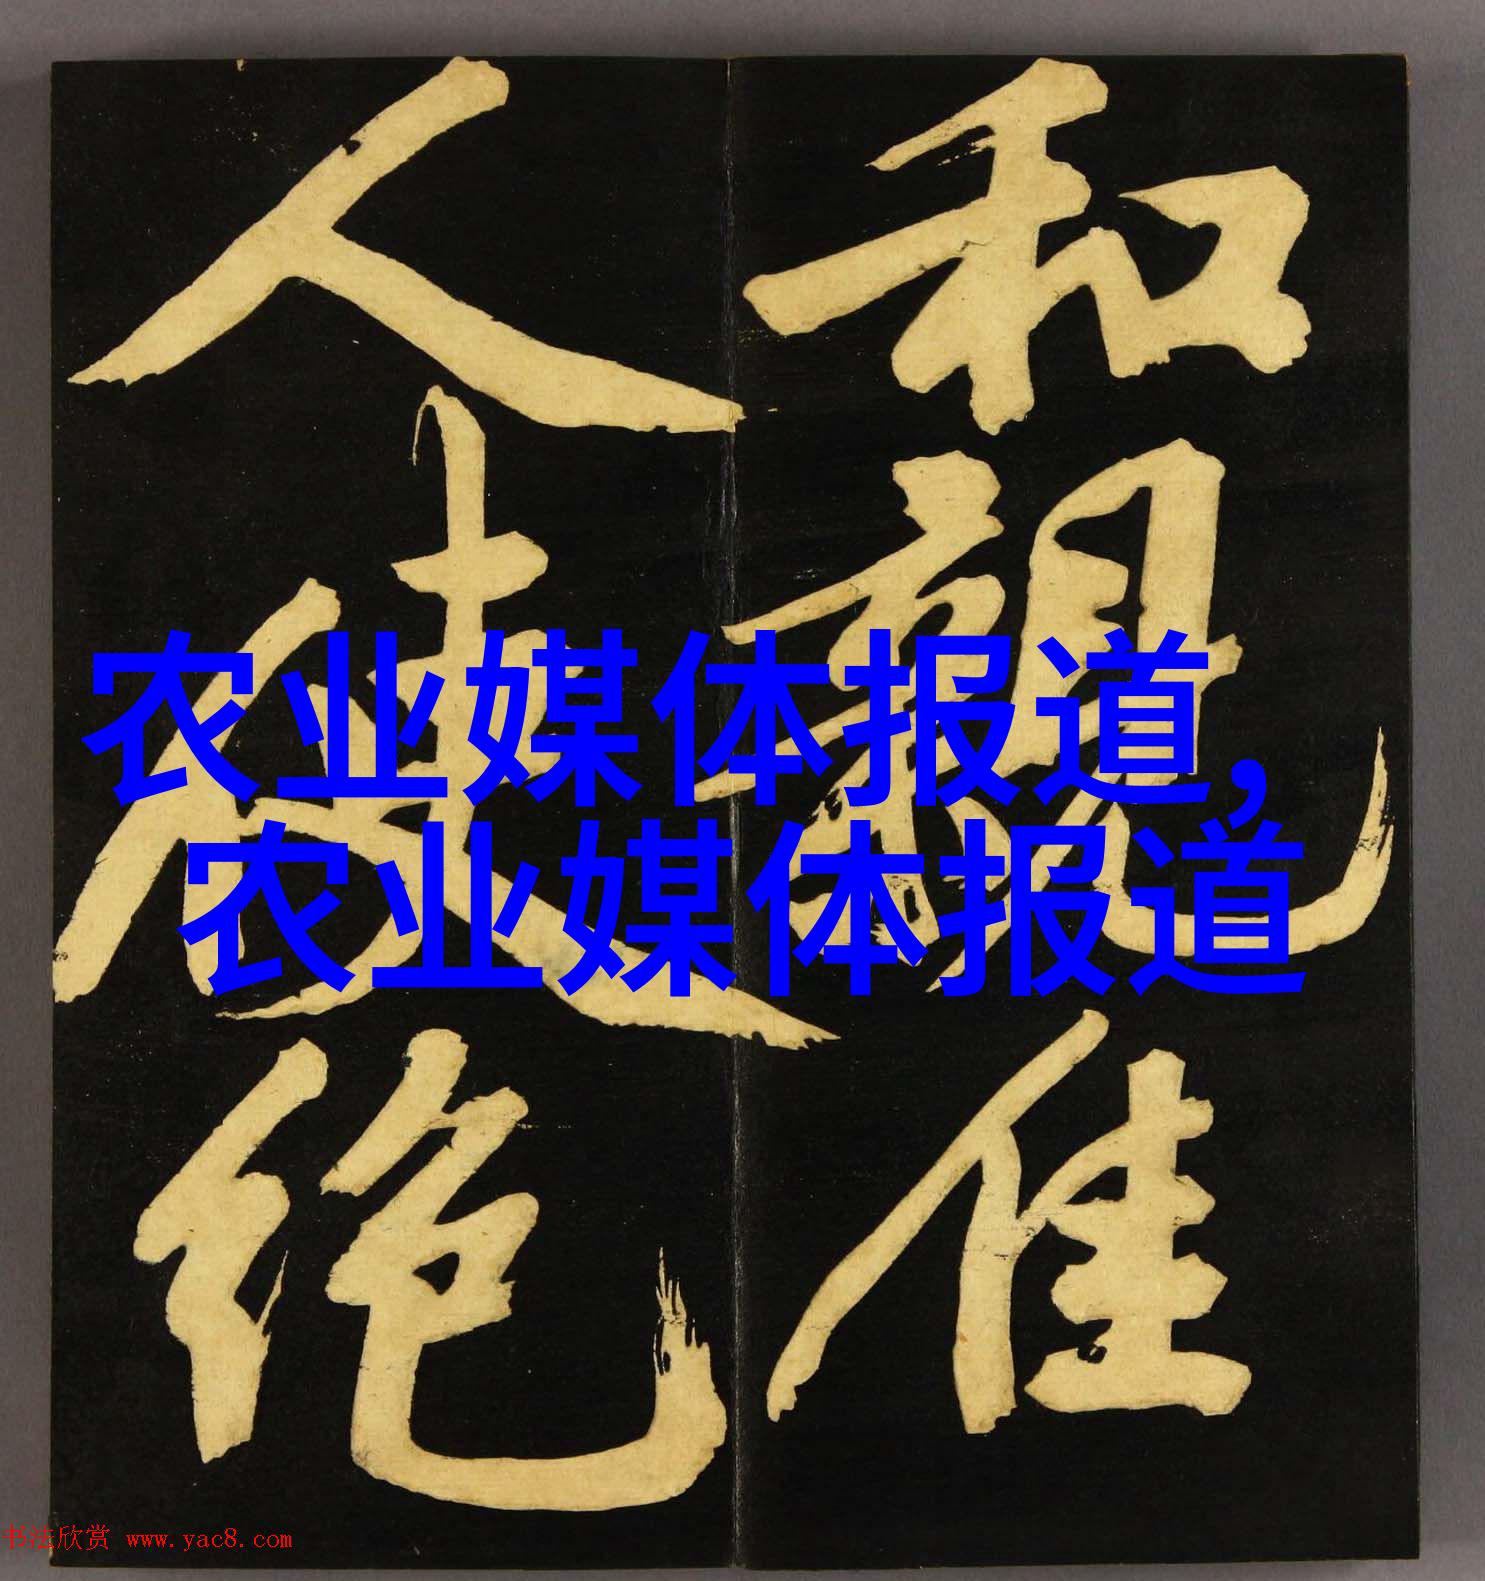 和親佳
人使絶
农业媒体报道,
农业媒体报道
书法欣赏 www.yac8.com